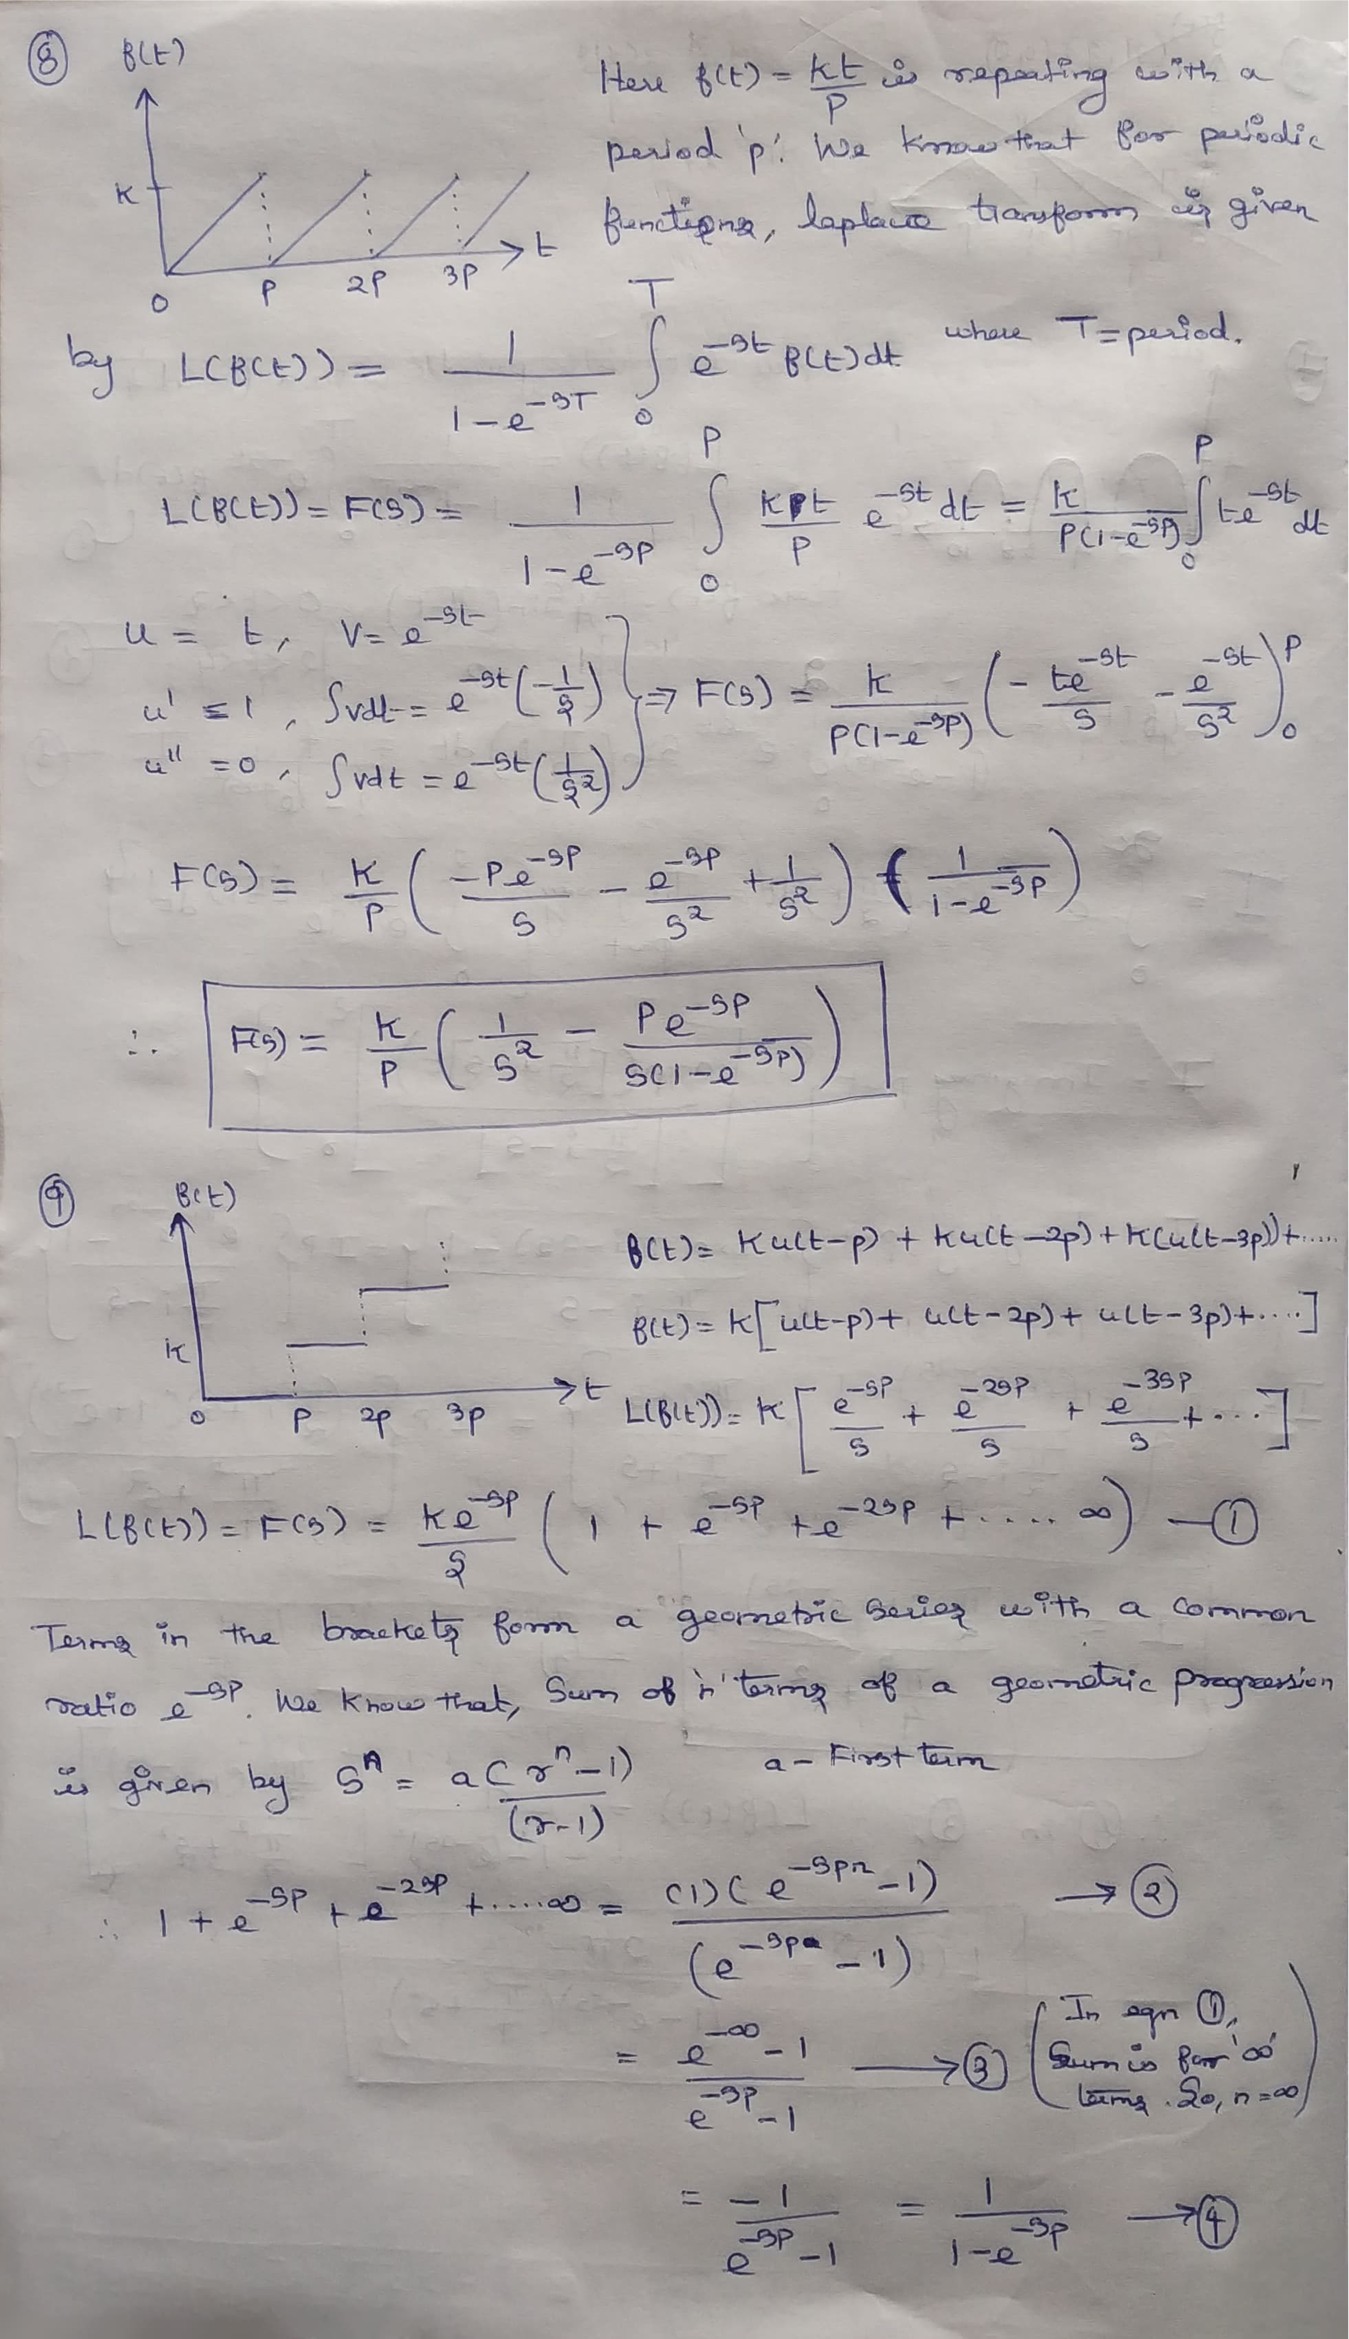 ⑧ f(t)
Here f(t) = kt/p is repeating with a
period 'p'. We know that for periodic
functions, laplace transform is given
K
0 P 2P 3P t
by L(f(t)) = 1/(1-e^-sT) ∫_0^T e^-st f(t) dt where T = period.
L(f(t)) = F(s) = 1/(1-e^-sp) ∫_0^P kt/p e^-st dt = k/(p(1-e^-sp)) ∫_0^P te^-st dt
u = t, v = e^-st
u' = 1, ∫vdt = e^-st (-1/s)
u'' = 0, ∫vdt = e^-st (1/s²)
} ⇒ F(s) = k/(p(1-e^-sp)) (- te^-st/s - e^-st/s²)_0^P
F(s) = k/p (-pe^-sp/s - e^-sp/s² + 1/s²) (1/(1-e^-sp))
∴ F(s) = k/p (1/s² - pe^-sp/(s(1-e^-sp)))
⑨ f(t)
f(t) = Ku(t-p) + Ku(t-2p) + K(u(t-3p)) + .....
f(t) = K[u(t-p) + u(t-2p) + u(t-3p) + ....]
K
0 P 2p 3p t
L(f(t)) = K [e^-sp/s + e^-2sp/s + e^-3sp/s + ....]
L(f(t)) = F(s) = Ke^-sp/s (1 + e^-sp + e^-2sp + ..... ∞) — ①
Terms in the brackets form a geometric series with a common
ratio e^-sp. We know that, Sum of 'n' terms of a geometric progression
is given by S^n = a(r^n - 1)/(r-1) a - First term
∴ 1 + e^-sp + e^-2sp + ..... ∞ = (1)(e^-spn - 1)/(e^-sp - 1) → ②
= (e^-∞ - 1)/(e^-sp - 1) → ③ (In eqn ①,
Sum is for '∞'
terms. So, n = ∞)
= -1/(e^-sp - 1) = 1/(1-e^-sp) → ④